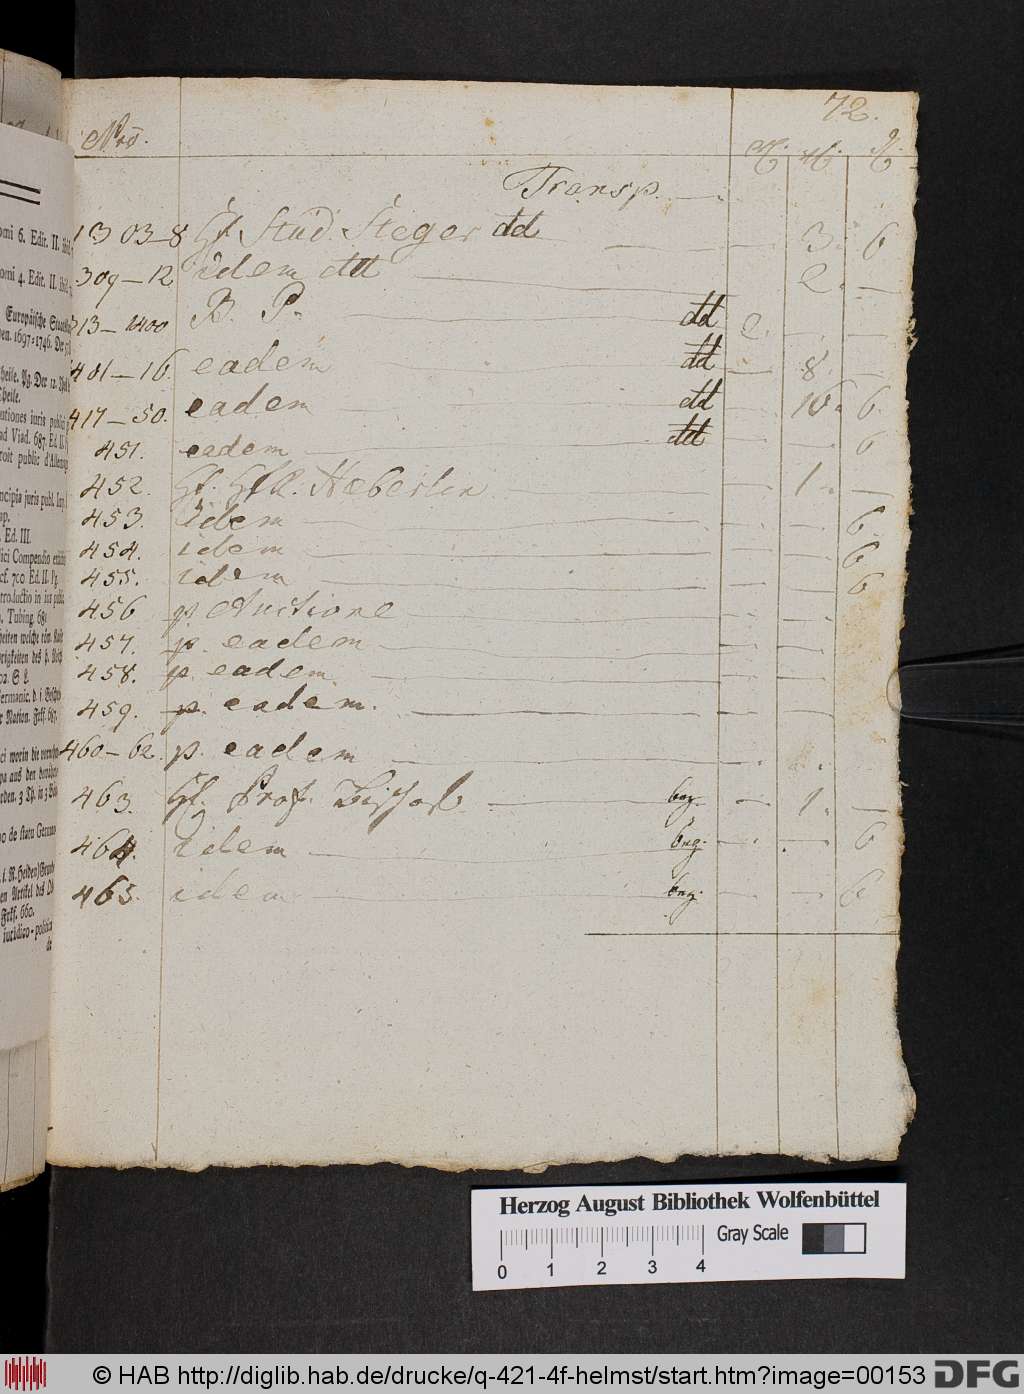 72.
Nro.
Transp.
1303–8 Hf. Stud. Steger dd — 3. 6
309–12 idem dd — 2. —
313–1400 B. P. — dd 2. — —
401–16. eadem — dd — 8. —
417–50. eadem — dd — 16. 6.
451. eadem — dd — — 6
452. Hf. Hfr. Häberlin — — 1. —
453. idem — — — 6.
454. idem — — — 6
455. idem — — — 6
456 p. Auctione — — —
457. p. eadem — — —
458. p. eadem. — — —
459. p. eadem. — — —
460–62. p. eadem — . .
463. Hf. Prof. Bischof — bng. — 1. —
464. idem — bng. — — 6
465. idem — bng. — — 6
omi 6. Edit. II.
omi 4. Edit. II.
Europäische
en. 1697-1746. Der
Der 12.
Theile.
iuris publici
ad Viad. 687. Ed.
roit public d'Allemag
ncipia juris publ.
Ed. III.
lici Compendio
cf. 700 Ed. II.
troductio in ius publ
Tubing. 68
heiten welche
des
02. S L
Germanic. d. i.
Nation. Frkf.
worin die
pa aus den
de statu German
Frkf. 660.
iuridico-politica
de
Herzog August Bibliothek Wolfenbüttel
0 1 2 3 4
Gray Scale
© HAB http://diglib.hab.de/drucke/q-421-4f-helmst/start.htm?image=00153
DFG